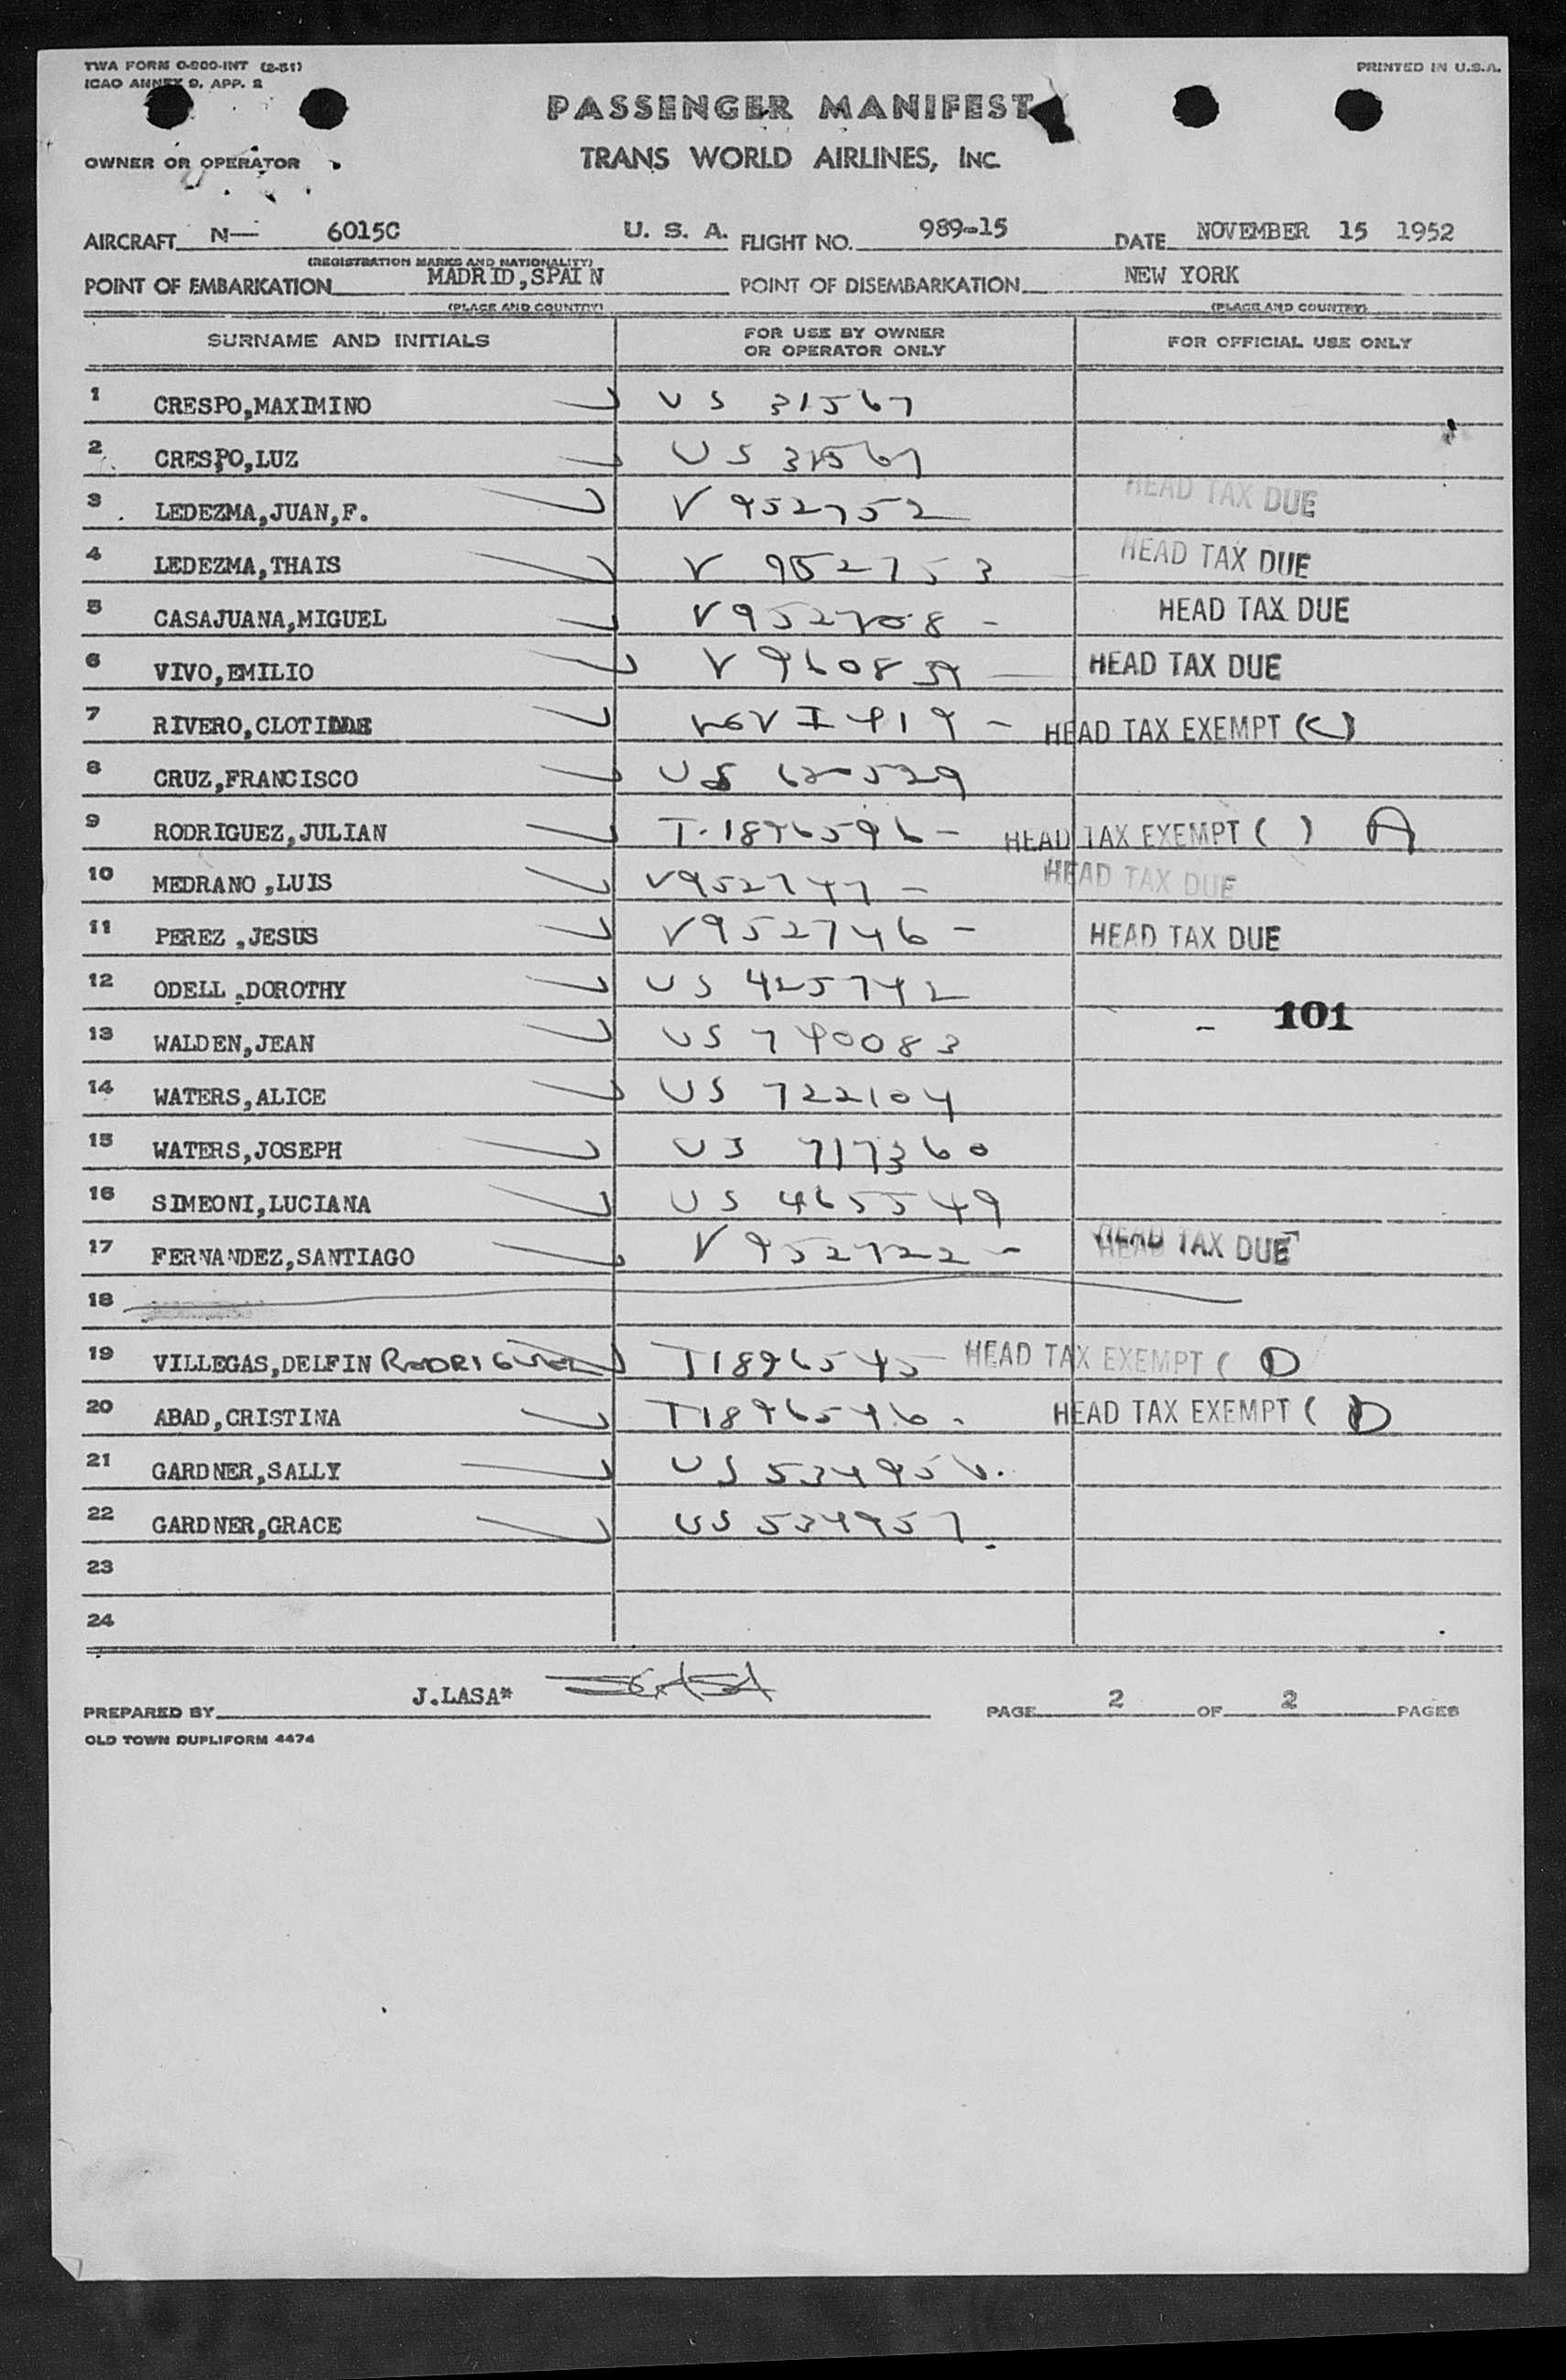 TWA FORM O-900-INT (2-51)
ICAO ANNEX 9, APP. 2
PRINTED IN U.S.A.
PASSENGER MANIFEST
OWNER OR OPERATOR
TRANS WORLD AIRLINES, INC
AIRCRAFT N— 6015C U. S. A. FLIGHT NO. 989-15 DATE NOVEMBER 15 1952
(REGISTRATION MARKS AND NATIONALITY)
POINT OF EMBARKATION MADRID,SPAIN POINT OF DISEMBARKATION NEW YORK
(PLACE AND COUNTRY) (PLACE AND COUNTRY)
SURNAME AND INITIALS FOR USE BY OWNER OR OPERATOR ONLY FOR OFFICIAL USE ONLY
1 CRESPO,MAXIMINO US 31567
2 CRESPO,LUZ US 31567
3 LEDEZMA,JUAN,F. V 952752 HEAD TAX DUE
4 LEDEZMA,THAIS V 952753 HEAD TAX DUE
5 CASAJUANA,MIGUEL V952708 - HEAD TAX DUE
6 VIVO,EMILIO HEAD TAX DUE
7 RIVERO, HEAD TAX EXEMPT (C)
8 CRUZ,FRANCISCO US
9 RODRIGUEZ,JULIAN T-1896596 - HEAD TAX EXEMPT ( ) A
10 MEDRANO ,LUIS V952747 - HEAD TAX DUE
11 PEREZ ,JESUS V952746 - HEAD TAX DUE
12 ODELL ,DOROTHY US 425742
101
13 WALDEN,JEAN US 740083
14 WATERS,ALICE US 722104
15 WATERS,JOSEPH US 717360
16 SIMEONI,LUCIANA US 465549
17 FERNANDEZ,SANTIAGO V 952722 - HEAD TAX DUE
18
19 VILLEGAS,DELFIN RODRIGUEZ T1896545 HEAD TAX EXEMPT ( D
20 ABAD,CRISTINA T1896546 . HEAD TAX EXEMPT ( D
21 GARDNER,SALLY US 534956.
22 GARDNER,GRACE US 534957
23
24
PREPARED BY J.LASA* PAGE 2 OF 2 PAGES
OLD TOWN DUPLIFORM 4474